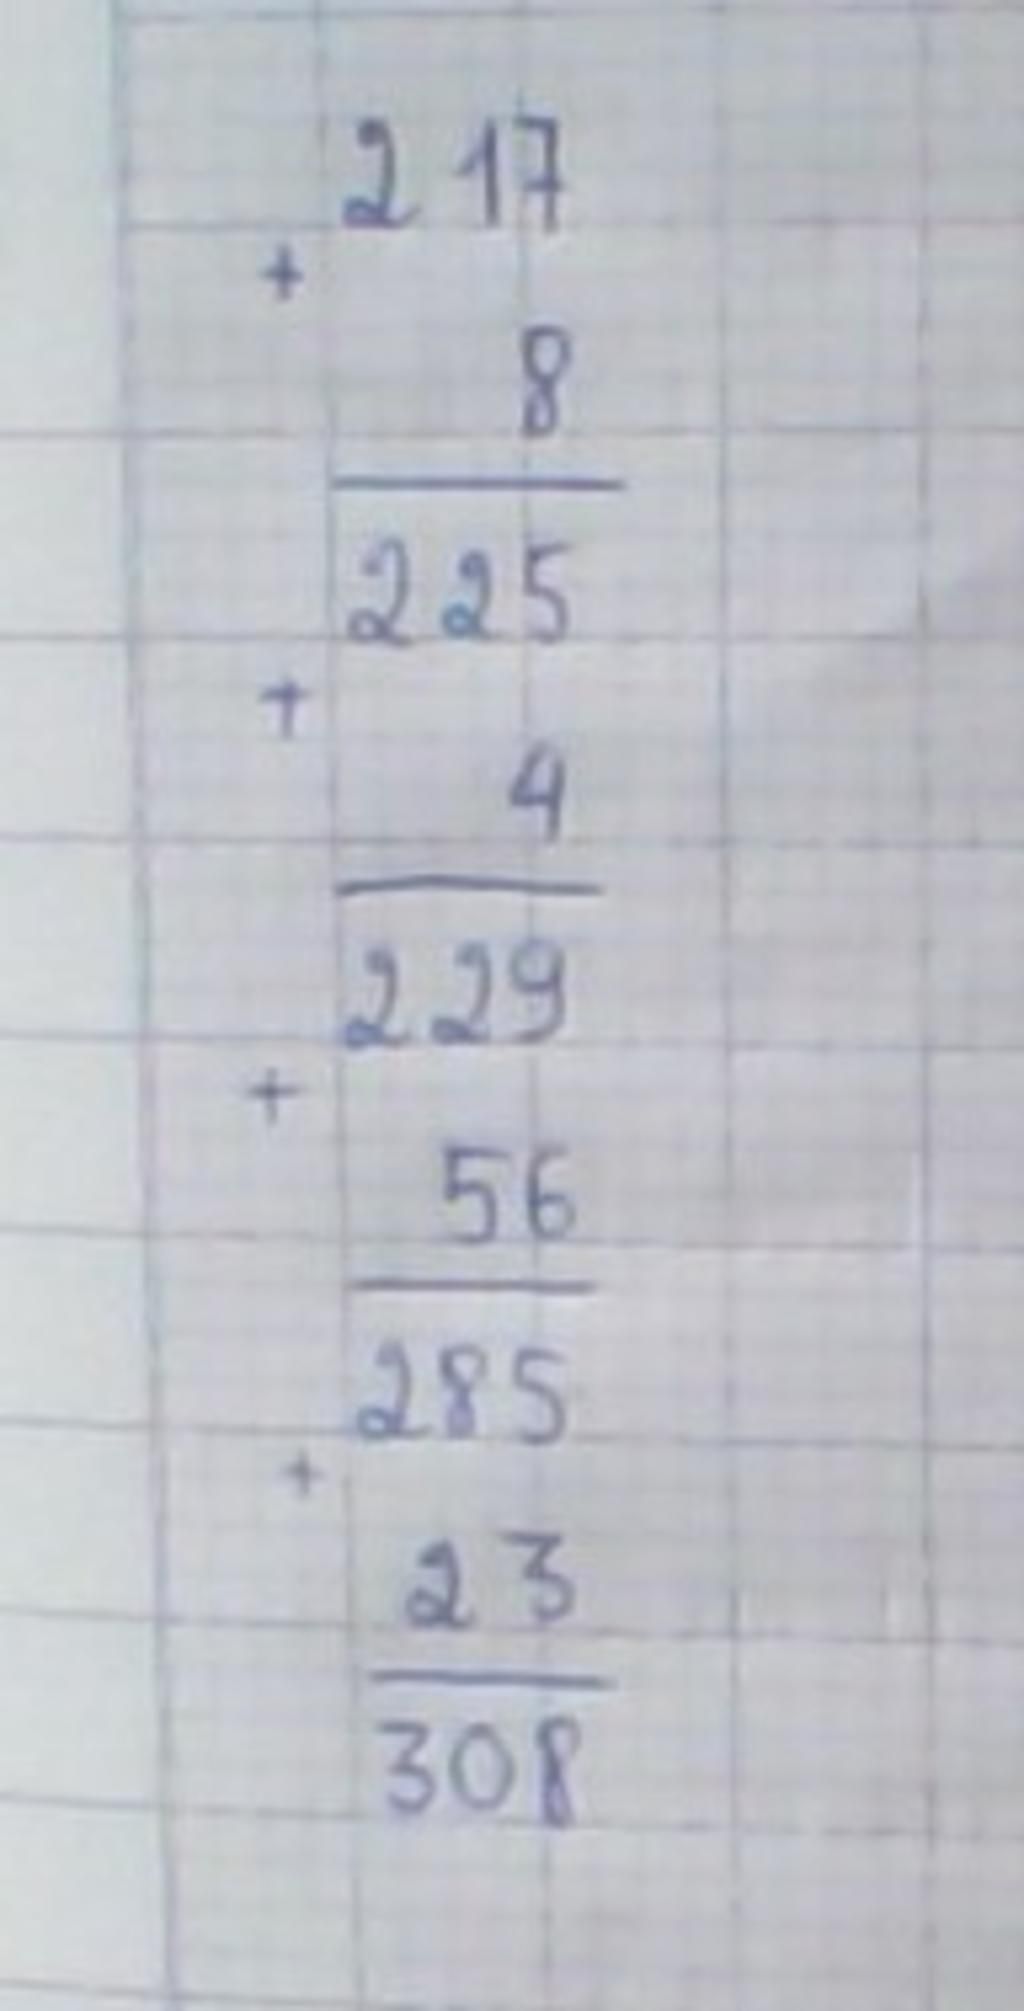 217
+
8
225
+
4
229
+
56
285
+
23
308